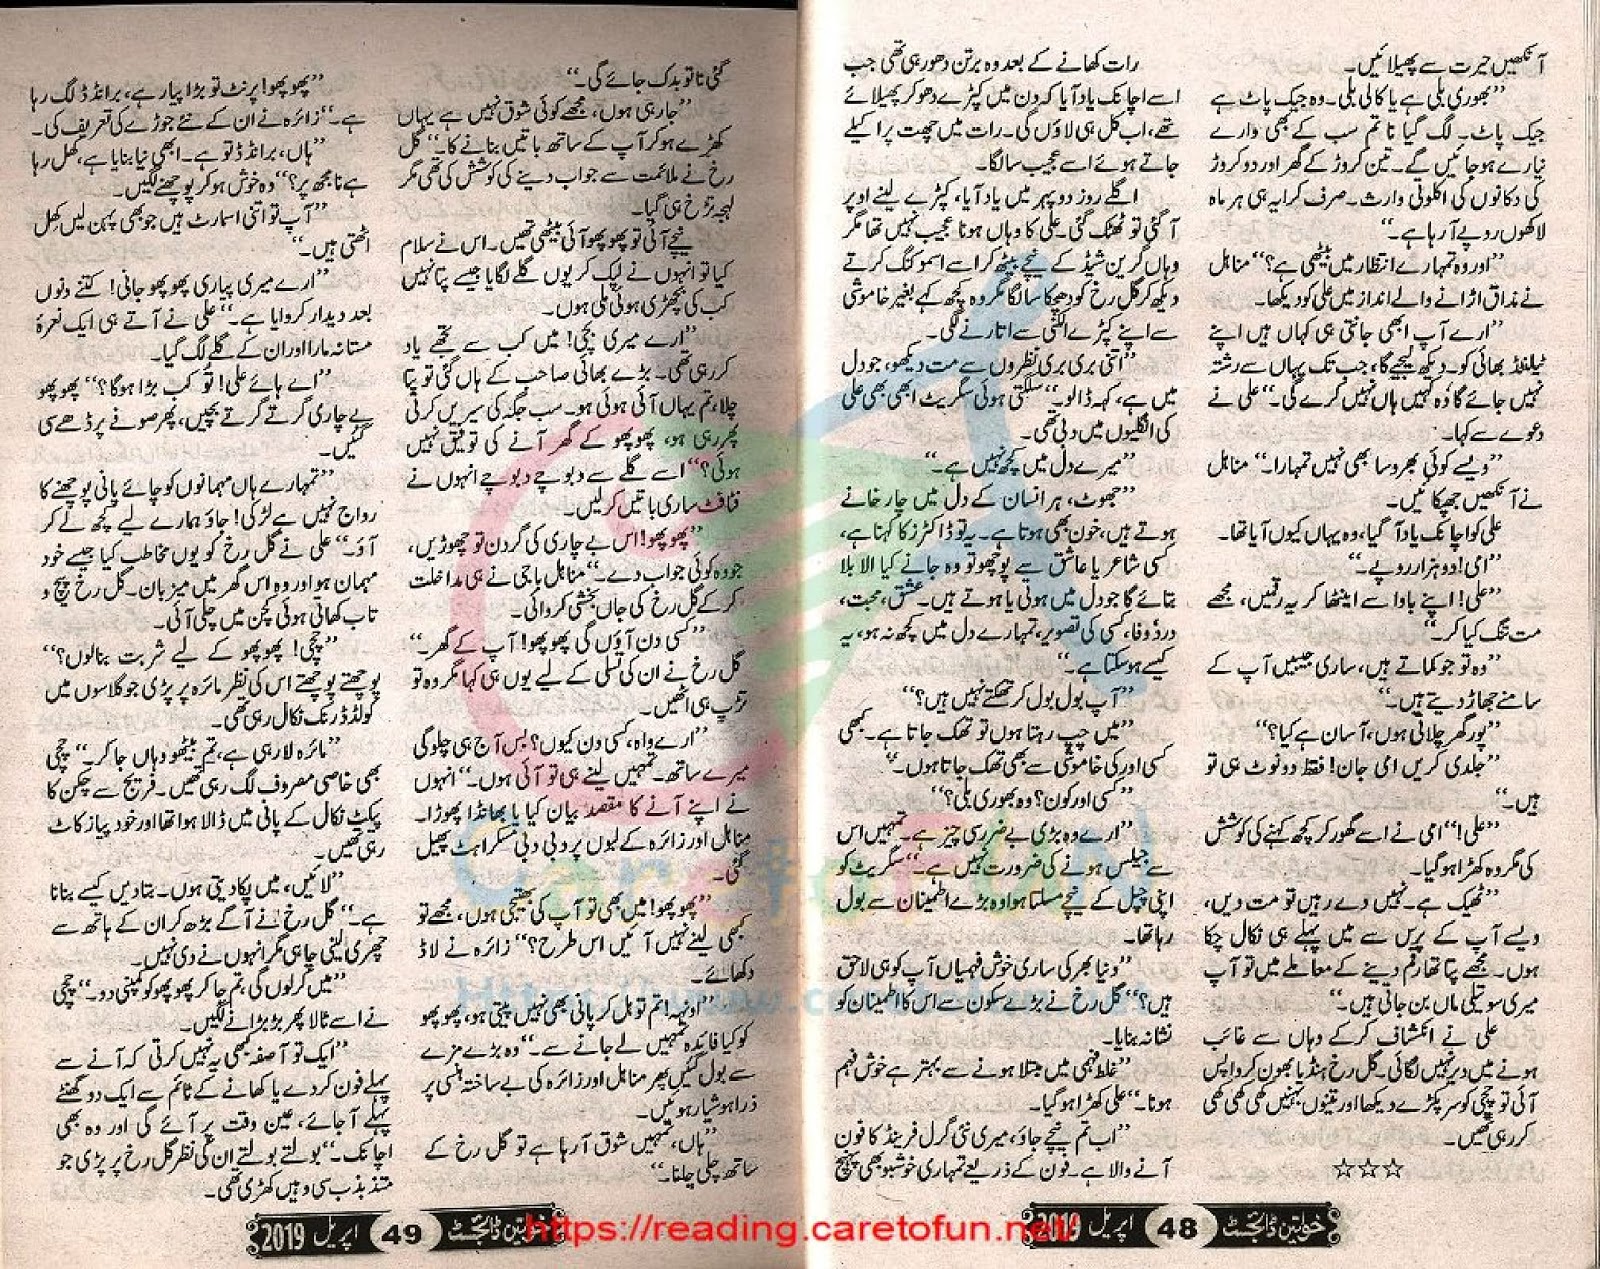 آنکھیں حیرت سے پھیلائیں۔
”بھوری بلی ہے یا کالی بلی۔ وہ جیک پاٹ ہے
جیک پاٹ۔ لگ گیا نا تم سب کے بھی وارے
نیارے ہو جائیں گے۔ تین کروڑ کے گھر اور دو کروڑ
کی دکانوں کی اکلوتی وارث۔ صرف کرایہ ہی ہر ماہ
لاکھوں روپے آ رہا ہے۔“
”اور وہ تمہارے انتظار میں بیٹھی ہے؟“ مناہل
نے مذاق اڑانے والے انداز میں علی کو دیکھا۔
”ارے آپ ابھی جانتی ہی کہاں ہیں اپنے
ٹیلنٹڈ بھائی کو۔ دیکھ لیجیے گا، جب تک یہاں سے رشتہ
نہیں جائے گا وہ کہیں ہاں نہیں کرے گی۔“ علی نے
دعوے سے کہا۔
”ویسے کوئی بھروسا بھی نہیں تمہارا۔“ مناہل
نے آنکھیں جھپکائیں۔
علی کو اچانک یاد آ گیا، وہ یہاں کیوں آیا تھا۔
”امی! دو ہزار روپے۔“
”علی! اپنے باوا سے اینٹھا کر یہ رقمیں، مجھے
مت تنگ کیا کر۔“
”وہ تو جو کماتے ہیں، ساری جیبیں آپ کے
سامنے جھاڑ دیتے ہیں۔“
”پور گھر چلاتی ہوں، آسان ہے کیا؟“
”جلدی کریں امی جان! فقط دو نوٹ ہی تو
ہیں۔“
”علی!“ امی نے اسے گھور کر کچھ کہنے کی کوشش
کی مگر وہ کھڑا ہو گیا۔
”ٹھیک ہے۔ نہیں دے رہیں تو مت دیں،
ویسے آپ کے پرس سے میں پہلے ہی نکال چکا
ہوں۔ مجھے پتا تھا رقم دینے کے معاملے میں تو آپ
میری سوتیلی ماں بن جاتی ہیں۔“
علی نے انکشاف کر کے وہاں سے غائب
ہونے میں دیر نہیں لگائی۔ گل رخ ہنڈیا بھون کر واپس
آئی تو چچی کو سر پکڑے دیکھا اور تینوں بہنیں کھی کھی کھی
کر رہی تھیں۔
☆☆☆
رات کھانے کے بعد وہ برتن دھو رہی تھی جب
اسے اچانک یاد آیا کہ دن میں کپڑے دھو کر پھیلائے
تھے، اب کل ہی لاؤں گی۔ رات میں چھت پر اکیلے
جاتے ہوئے اسے عجیب سا لگا۔
اگلے روز دوپہر میں یاد آیا، کپڑے لینے اوپر
آ گئی تو ٹھٹک گئی۔ علی کا وہاں ہونا عجیب نہیں تھا مگر
وہاں گرین شیڈ کے نیچے بیٹھ کر اسے اسموکنگ کرتے
دیکھ کر گل رخ کو دھچکا سا لگا مگر وہ کچھ کہے بغیر خاموشی
سے اپنے کپڑے الگنی سے اتارنے لگی۔
”اتنی بری بری نظروں سے مت دیکھو، جو دل
میں ہے، کہہ ڈالو۔“ سلگتی ہوئی سگریٹ ابھی بھی علی
کی انگلیوں میں دبی تھی۔
”میرے دل میں کچھ نہیں ہے۔“
”جھوٹ، ہر انسان کے دل میں چار خانے
ہوتے ہیں، خون بھی ہوتا ہے۔ یہ تو ڈاکٹرز کا کہنا ہے،
کسی شاعر یا عاشق سے پوچھو تو وہ جانے کیا الا بلا
بتائے گا جو دل میں ہوتی یا ہوتے ہیں۔ عشق، محبت،
درد، وفا، کسی کی تصویر، تمہارے دل میں کچھ نہ ہو، یہ
کیسے ہو سکتا ہے۔“
”آپ بول بول کر تھکتے نہیں ہیں؟“
”میں چپ رہتا ہوں تو تھک جاتا ہے۔ کبھی
کسی اور کی خاموشی سے بھی تھک جاتا ہوں۔“
”کسی اور کون؟ وہ بھوری بلی؟“
”ارے وہ بڑی بے ضرر سی چیز ہے۔ تمہیں اس
سے جیلس ہونے کی ضرورت نہیں ہے۔“ سگریٹ کو
اپنی چپل کے نیچے مسلتا ہوا وہ بڑے اطمینان سے بول
رہا تھا۔
”دنیا بھر کی ساری خوش فہمیاں آپ کو ہی لاحق
ہیں؟“ گل رخ نے بڑے سکون سے اس کا اطمینان کو
نشانہ بنایا۔
”غلط فہمی میں مبتلا ہونے سے بہتر ہے خوش فہم
ہونا۔“ علی کھڑا ہو گیا۔
”اب تم نیچے جاؤ، میری نئی گرل فرینڈ کا فون
آنے والا ہے۔ فون کے ذریعے تمہاری خوشبو بھی پہنچ
خواتین ڈائجسٹ 48 اپریل 2019
گئی نا تو بدک جائے گی۔“
”جا رہی ہوں، مجھے کوئی شوق نہیں ہے یہاں
کھڑے ہو کر آپ کے ساتھ باتیں بنانے کا۔“ گل
رخ نے ملائمت سے جواب دینے کی کوشش کی تھی مگر
لہجہ تڑخ ہی گیا۔
نیچے آئی تو پھوپھو آئی بیٹھی تھیں۔ اس نے سلام
کیا تو انہوں نے لپک کر یوں گلے لگایا جیسے پتا نہیں
کب کی بچھڑی ہوئی ملی ہوں۔
”ارے میری بچی! میں کب سے تجھے یاد
کر رہی تھی۔ بڑے بھائی صاحب کے ہاں گئی تو پتا
چلا، تم یہاں آئی ہوئی ہو۔ سب جگہ کی سیریں کرتی
پھر رہی ہو، پھوپھو کے گھر آنے کی توفیق نہیں
ہوئی؟“ اسے گلے سے دبوچے دبوچے انہوں نے
فٹافٹ ساری باتیں کر لیں۔
”پھوپھو! اس بے چاری کی گردن تو چھوڑیں،
جو وہ کوئی جواب دے۔“ مناہل باجی نے ہی مداخلت
کر کے گل رخ کی جاں بخشی کروائی۔
”کسی دن آؤں گی پھوپھو! آپ کے گھر۔“
گل رخ نے ان کی تسلی کے لیے یوں ہی کہا مگر وہ تو
تڑپ ہی اٹھیں۔
”ارے واہ، کسی دن کیوں؟ بس آج ہی چلو گی
میرے ساتھ۔ تمہیں لینے ہی تو آئی ہوں۔“ انہوں
نے اپنے آنے کا مقصد بیان کیا یا بھانڈا پھوڑا۔
مناہل اور زائرہ کے لبوں پر دبی دبی مسکراہٹ پھیل
گئی۔
”پھوپھو! میں بھی تو آپ کی بھتیجی ہوں، مجھے تو
کبھی لینے نہیں آئیں اس طرح؟“ زائرہ نے لاڈ
دکھائے۔
”اونہہ! تم تو ہل کر پانی بھی نہیں پیتی ہو، پھوپھو
کو کیا فائدہ تمہیں لے جانے سے۔“ وہ بڑے مزے
سے بول گئیں پھر مناہل اور زائرہ کی بے ساختہ ہنسی پر
ذرا ہوشیار ہوئیں۔
”ہاں، تمہیں شوق آ رہا ہے تو گل رخ کے
ساتھ چلی چلنا۔“
”پھوپھو! پرنٹ تو بڑا پیارا ہے، برانڈڈ لگ رہا
ہے۔“ زائرہ نے ان کے نئے جوڑے کی تعریف کی۔
”ہاں، برانڈڈ تو ہے۔ ابھی نیا بنایا ہے، کھل رہا
ہے نا مجھ پر؟“ وہ خوش ہو کر پوچھنے لگیں۔
”آپ تو اتنی اسمارٹ ہیں جو بھی پہن لیں کھل
اٹھتی ہیں۔“
”ارے میری پیاری پھوپھو جانی! کتنے دنوں
بعد دیدار کروایا ہے۔“ علی نے آتے ہی ایک نعرۂ
مستانہ مارا اور ان کے گلے لگ گیا۔
”اے ہائے علی! تُو کب بڑا ہوگا؟“ پھوپھو
بے چاری گرتے گرتے بچیں، پھر صوفے پر ڈھے سی
گئیں۔
”تمہارے ہاں مہمانوں کو چائے پانی پوچھنے کا
رواج نہیں ہے لڑکی! جاؤ ہمارے لیے کچھ لے کر
آؤ۔“ علی نے گل رخ کو یوں مخاطب کیا جیسے خود
مہمان ہو اور وہ اس گھر میں میزبان۔ گل رخ پیچ و
تاب کھاتی ہوئی کچن میں چلی آئی۔
”چچی! پھوپھو کے لیے شربت بنا لوں؟“
پوچھتے پوچھتے اس کی نظر مائرہ پر پڑی جو گلاسوں میں
کولڈ ڈرنک نکال رہی تھی۔
”مائرہ لا رہی ہے، تم بیٹھو وہاں جا کر۔“ چچی
بھی خاصی مصروف لگ رہی تھیں۔ فریج سے چکن کا
پیکٹ نکال کے پانی میں ڈالا ہوا تھا اور خود پیاز کاٹ
رہی تھیں۔
”لائیں، میں پکا دیتی ہوں۔ بتا دیں کیسے بنانا
ہے۔“ گل رخ نے آگے بڑھ کر ان کے ہاتھ سے
چھری لینی چاہی مگر انہوں نے دی نہیں۔
”میں کر لوں گی، تم جا کر پھوپھو کو کمپنی دو۔“ چچی
نے اسے ٹالا پھر بڑبڑانے لگیں۔
”ایک تو آصفہ کبھی یہ نہیں کرتی کہ آنے سے
پہلے فون کر دے یا کھانے کے ٹائم سے ایک دو گھنٹے
پہلے آ جائے، عین وقت پر آئے گی اور وہ بھی
اچانک۔“ بولتے بولتے ان کی نظر گل رخ پر پڑی جو
متذبذب سی وہیں کھڑی تھی۔
خواتین ڈائجسٹ 49 اپریل 2019
https://reading.caretofun.net/